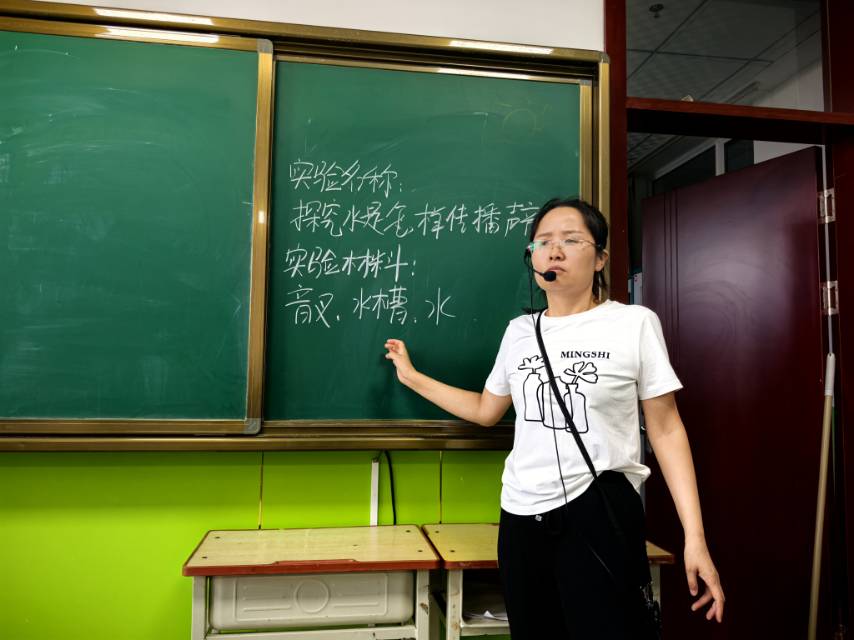 实验名称:
探究水是怎样传播声
实验材料:
音叉、水槽、水
MINGSHI